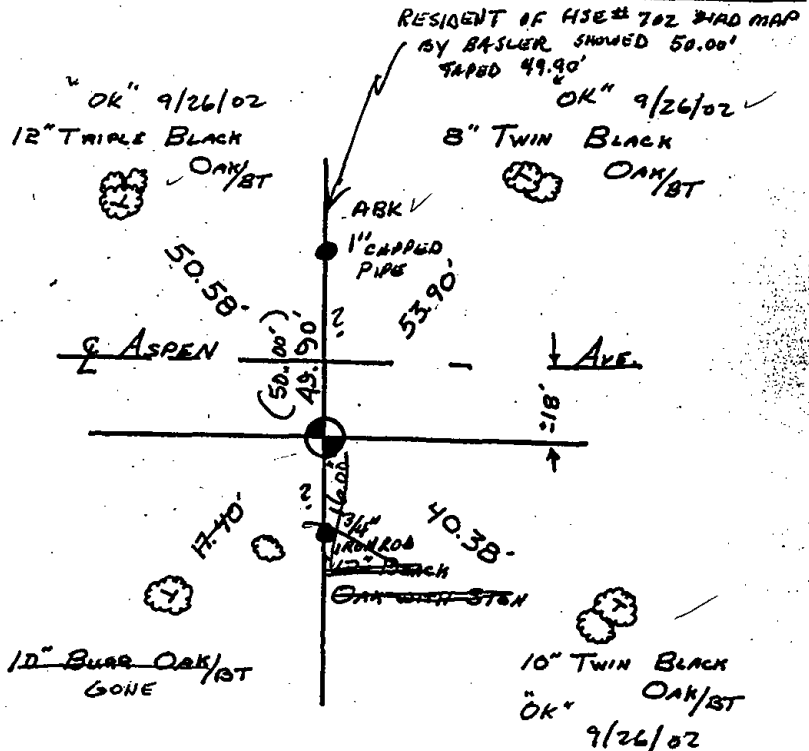 RESIDENT OF HSE# 702 HAD MAP
BY BASLER SHOWED 50.00'
TAPED 49.90'
"OK" 9/26/02
12" TRIPLE BLACK
OAK/BT
"OK" 9/26/02
8" TWIN BLACK
OAK/BT
ABK
1" CAPPED
PIPE
50.58'
53.90'
(50.00')
49.90'
?
℄ ASPEN AVE.
±18'
?
16.00'
17.40'
3/4"
IRON ROD
40.38'
BLACK
OAK WITH SIGN
10" BURR OAK/BT
GONE
10" TWIN BLACK
OAK/BT
"OK"
9/26/02